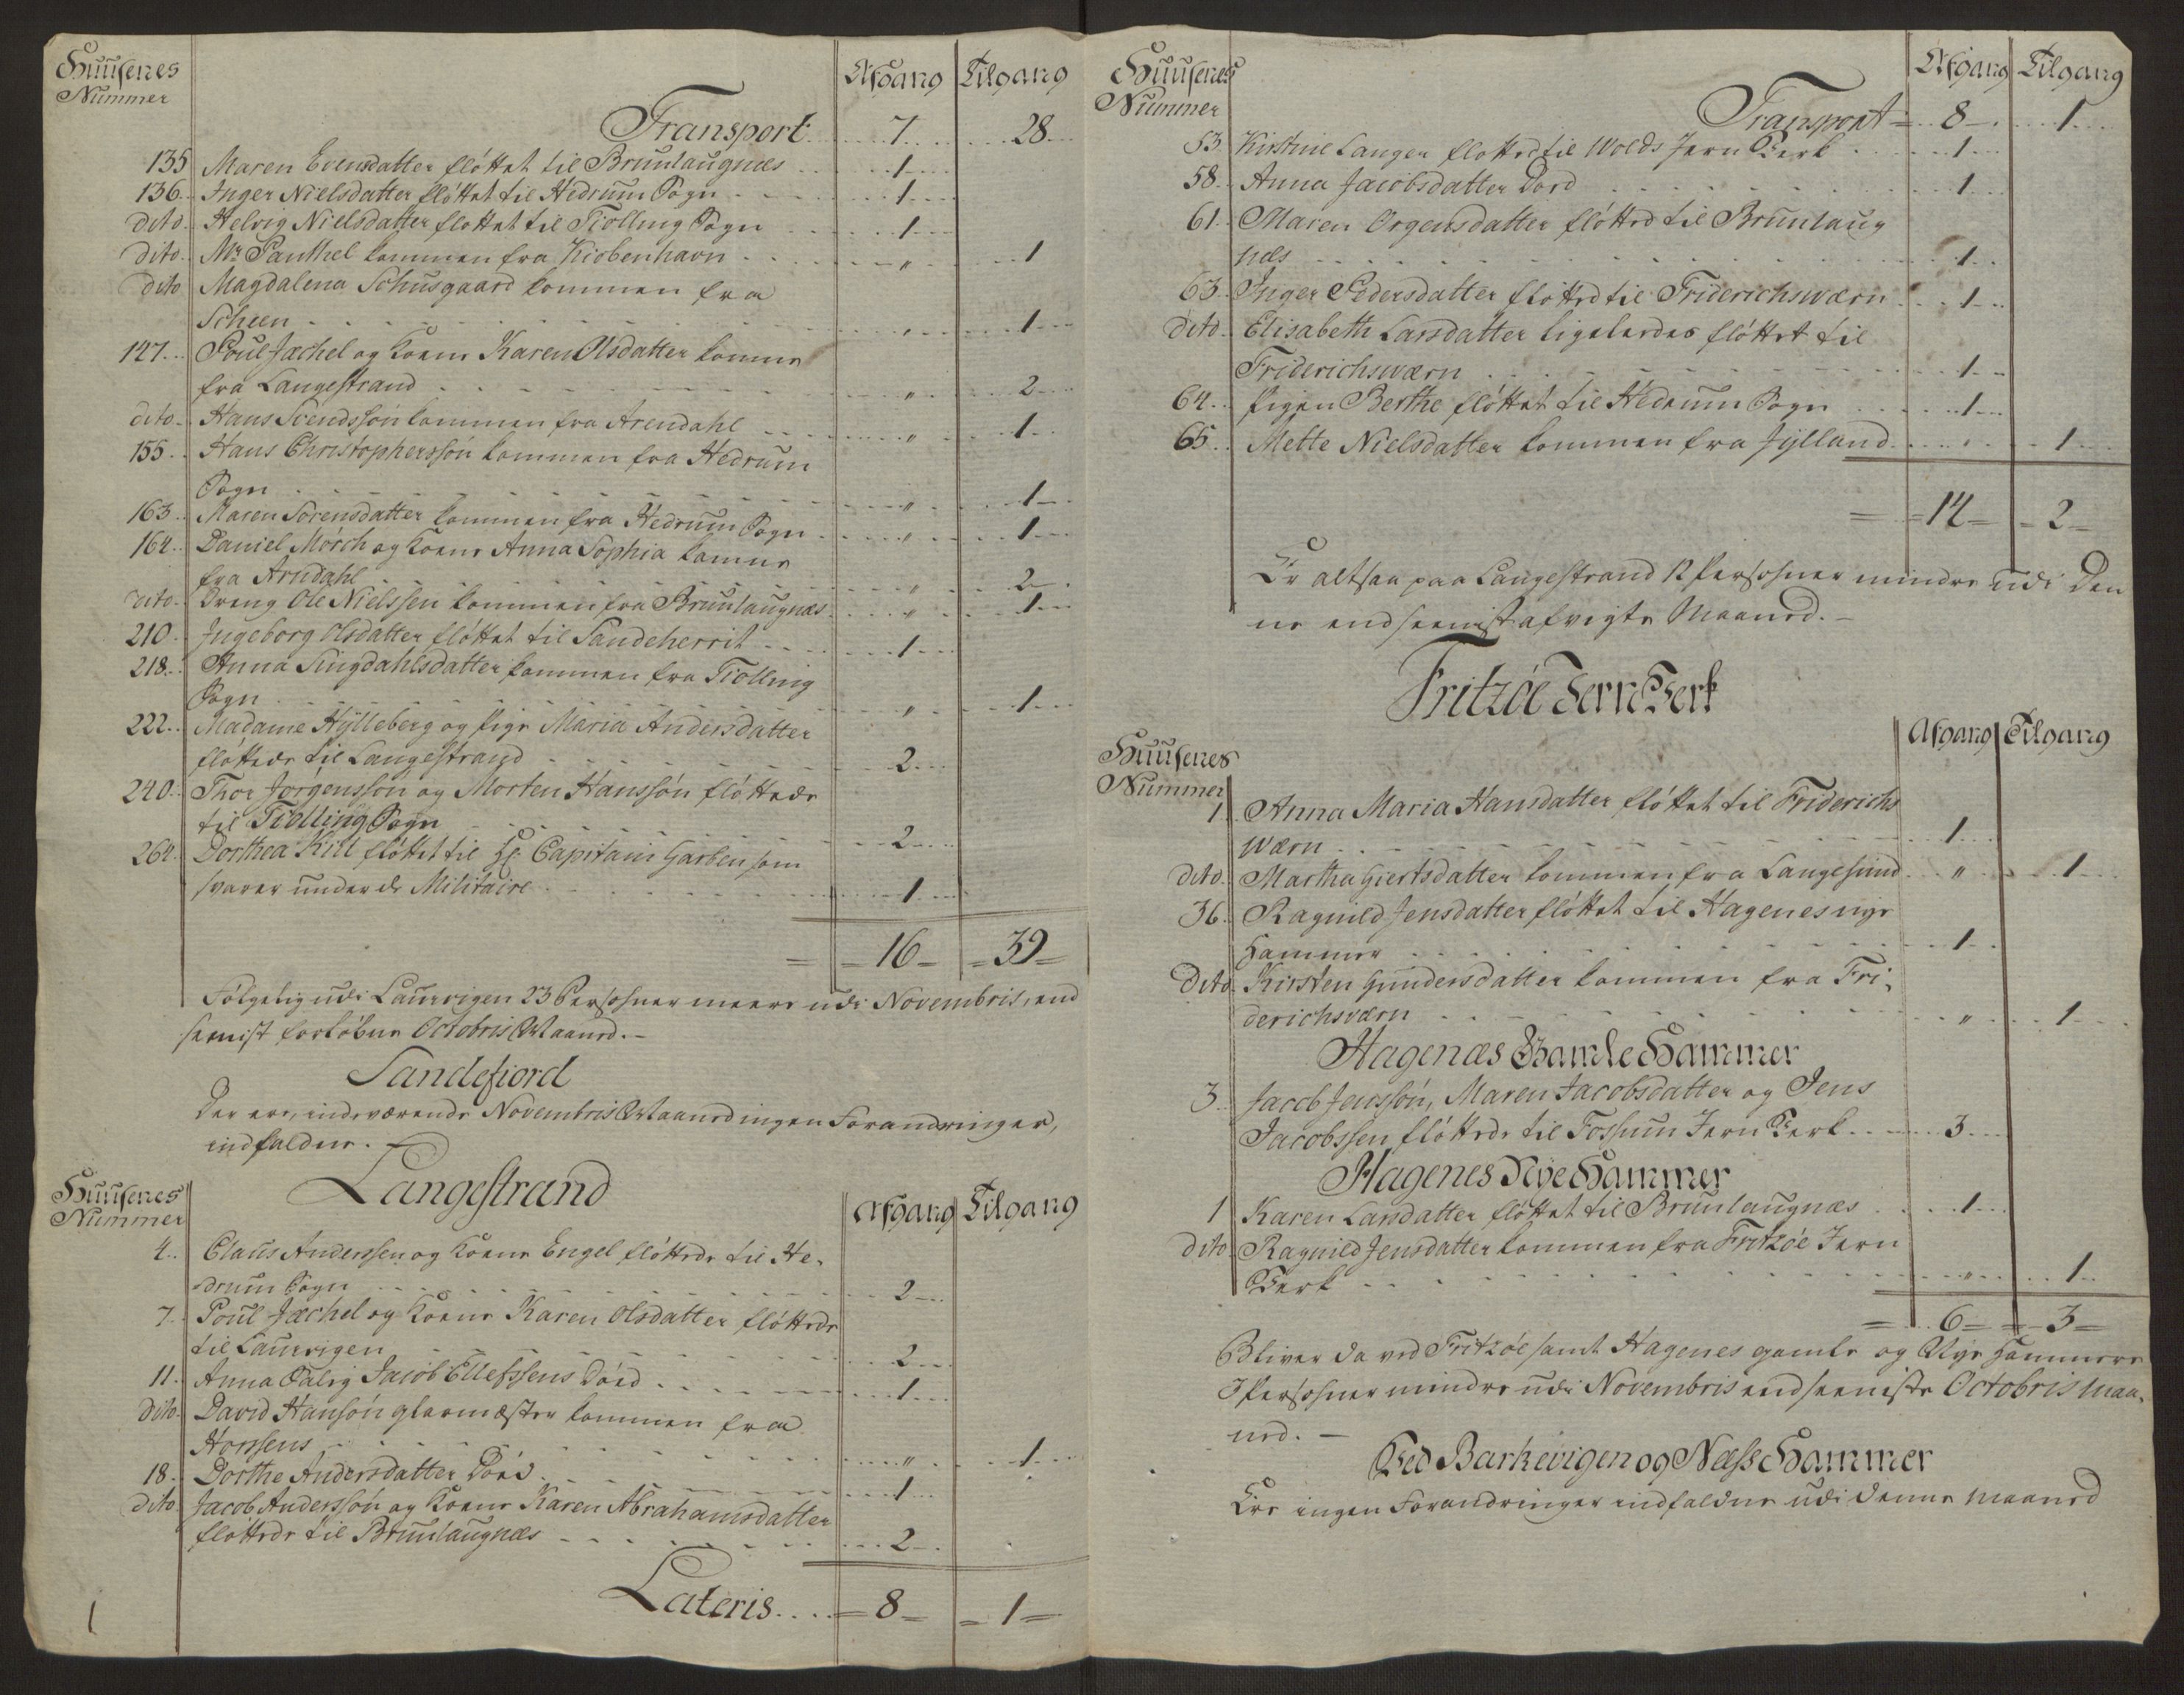 Huusenes
Nummer
Afgang Tilgang
Transport 7 28
135 Maren Evensdatter fløttet til Brunlaugnæs 1
136 Inger Nielsdatter fløttet til Hedrum Sogn 1
dito Helvig Nielsdatter fløttet til Tiølling Sogn 1
dito Mr Panthel kommen fra Kiøbenhavn " 1
dito Magdalena Schusgaard kommen fra
Scheen " 1
147 Poul Jæchel og Kone Karen Olsdatter komne
fra Langestrand " 2
dito Hans Svendssøn kommen fra Arendahl " 1
155 Hans Christophersøn kommen fra Hedrum
Sogn " 1
163 Maren Sørensdatter kommen fra Hedrum Sogn " 1
164 Daniel Mørch og Kone Anna Sophia komne
fra Arndahl " 2
dito Dreng Ole Nielssen kommen fra Brunlaugnæs " 1
210 Ingeborg Olsdatter fløttet til Sandeherrit 1
218 Anna Singdahlsdatter kommen fra Tiølling
Sogn " 1
222 Madame Hylleberg og Pige Maria Andersdatter
fløttede til Langestrand 2
240 Thor Jørgenssøn og Morten Hanssøn fløttede
til Tiølling Sogn 2
264 Dorthea Kiil fløttet til Hr Capitain Garben som
svarer under de Militaire 1
= 16 = 39 =
Følgelig udi Laurvigen 23 Persohner meere udi Novembris, end
senist forløbne Octobris Maaned. -
Sandefiord
Der ere, indeværende Novembris Maaned ingen Forandringer,
indfaldne.
Langestrand
Huusenes
Nummer
Afgang Tilgang
4 Claus Anderssen og Kone Engel fløttede til He-
drum Sogn 2
7 Poul Jæchel og Kone Karen Olsdatter fløttede
til Laurvigen 2
11 Anna Salig Jacob Ellefssens Død 1
dito David Hansøn glarmæster kommen fra
Horssens " 1
18 Dorthe Andersdatter Død 1
dito Jacob Anderssøn og Kone Karen Abrahamsdatter
fløttede til Brunlaugnæs 2
Lateris = 8 = 1 =
Huusenes
Nummer
Afgang Tilgang
Transport 8 1
53 Kirstine Langen fløttet til Wolds Jern Verk 1
58 Anna Jacobsdatter Død 1
61 Maren Orgensdatter fløttet til Brunlaug
næs 1
63 Inger Pedersdatter fløttet til Friderichswærn 1
dito Elisabeth Larsdatter ligeledes fløttet til
Friderichswærn 1
64 Pigen Berthe fløttet til Hedrum Sogn 1
65 Mette Nielsdatter kommen fra Jylland " 1
= 14 = 2 =
Er altsaa paa Langestrand 12 Persohner mindre udi Den
ne end seenist afvigte Maaned. -
Fritzøe Jern Verk
Huusenes
Nummer
Afgang Tilgang
1 Anna Maria Hansdatter fløttet til Friderichs
wærn 1
dito Martha Giertsdatter kommen fra Langesund " 1
36 Ragnild Jensdatter fløttet til Hagenes nye
Hammer 1
dito Kirsten Gundersdatter kommen fra Fri-
derichsværn " 1
Hagenæs Gamle Hammer
3 Jacob Jenssøn, Maren Jacobsdatter og Jens
Jacobssen fløttede til Fossum Jern Verk 3
Hagenes Nye Hammer
1 Karen Larsdatter fløttet til Brunlaugnæs 1
dito Ragnild Jensdatter kommen fra Fritzøe Jern
Verk " 1
= 6 = 3 =
Bliver da ved Fritzøe samt Hagenes gamle og Nye Hammere
3 Persohner mindre udi Novembris end seeniste Octobris Maa-
ned. -
Ved Barkevigen og Næss Hammer
Ere ingen Forandringer indfaldne udi Denne Maaned